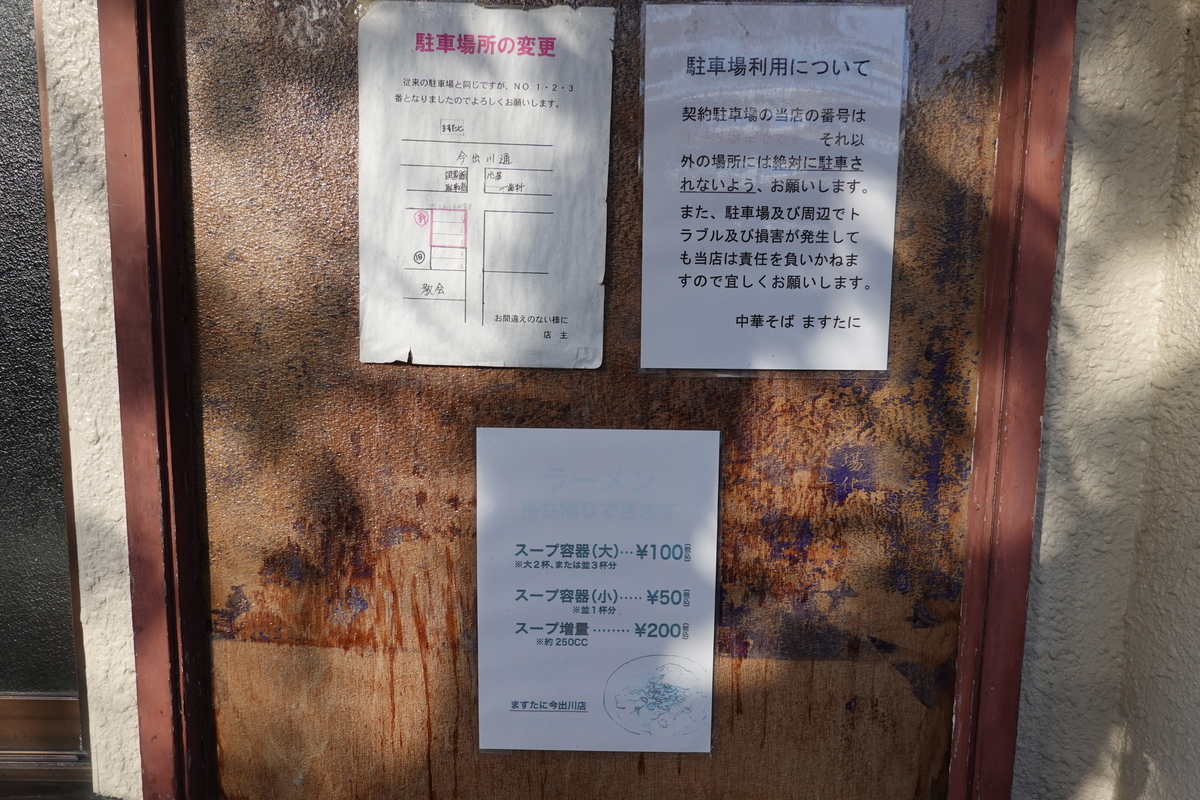 駐車場所の変更
従来の駐車場と同じですが、NO 1・2・3
番となりましたのでよろしくお願いします。
ますたに
今出川通
新
旧
教会
お間違えのない様に
店 主
駐車場利用について
契約駐車場の当店の番号は
それ以
外の場所には絶対に駐車さ
れないよう、お願いします。
また、駐車場及び周辺でト
ラブル及び損害が発生して
も当店は責任を負いかねま
すので宜しくお願いします。
中華そば ますたに
ラーメン
持ち帰りできます
スープ容器(大)…¥100(税込)
※大2杯、または並3杯分
スープ容器(小)‥…¥50(税込)
※並1杯分
スープ増量 ‥‥‥‥ ¥200(税込)
※約250CC
ますたに今出川店